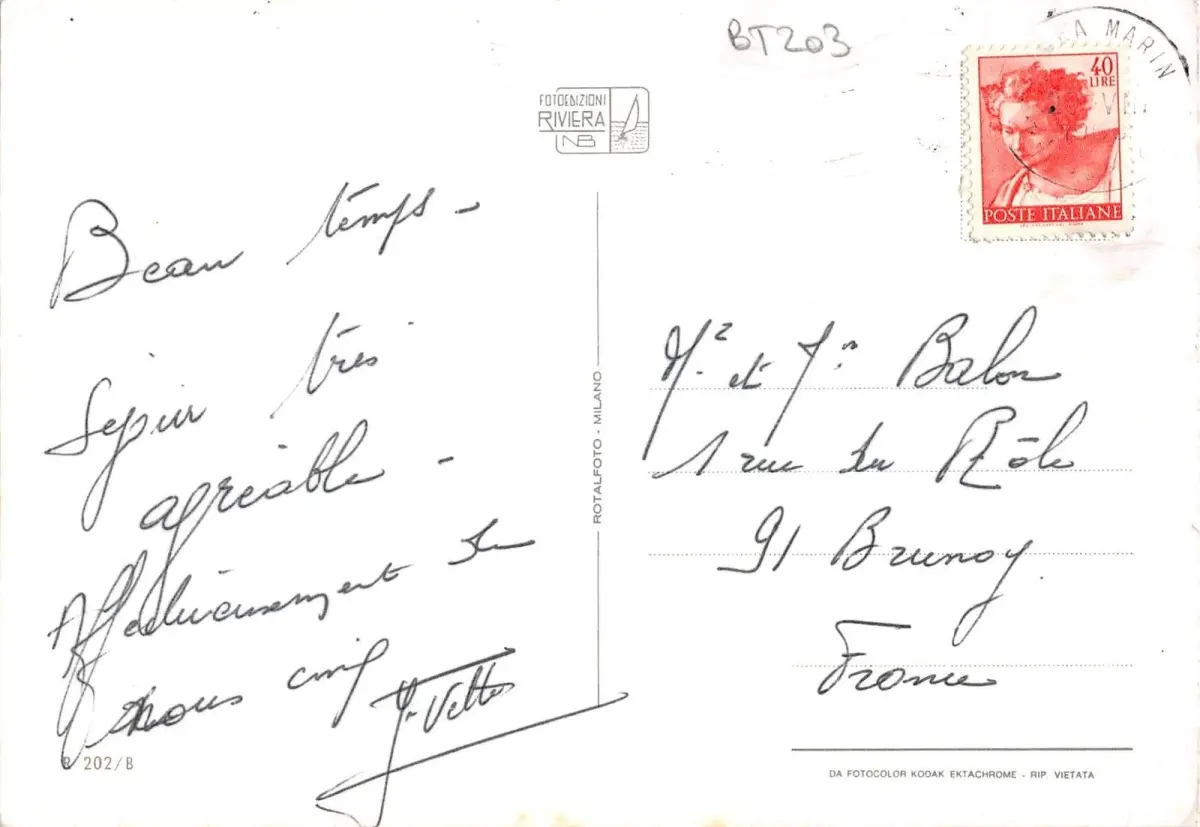 BT203
FOTOEDIZIONI
RIVIERA
NB
EA MARIN
40
LIRE
POSTE ITALIANE
Beau temps -
Séjour très
agréable -
Affectueusement de
nous cinq
ROTALFOTO - MILANO
et Balon
1 rue du Rôle
91 Brunoy
France
202/B
DA FOTOCOLOR KODAK EKTACHROME - RIP. VIETATA